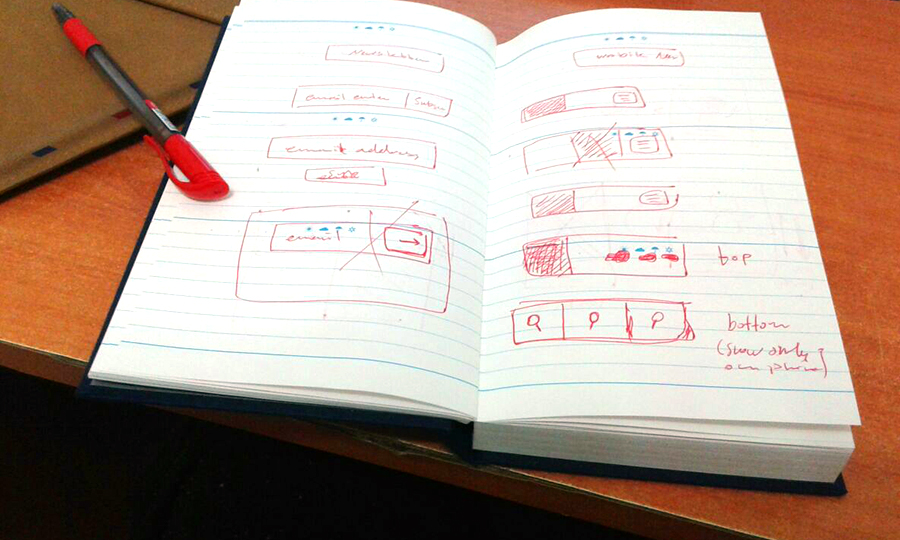 Newsletter
email enter
email address
email
mobile
top
bottom
(show only
on phone)